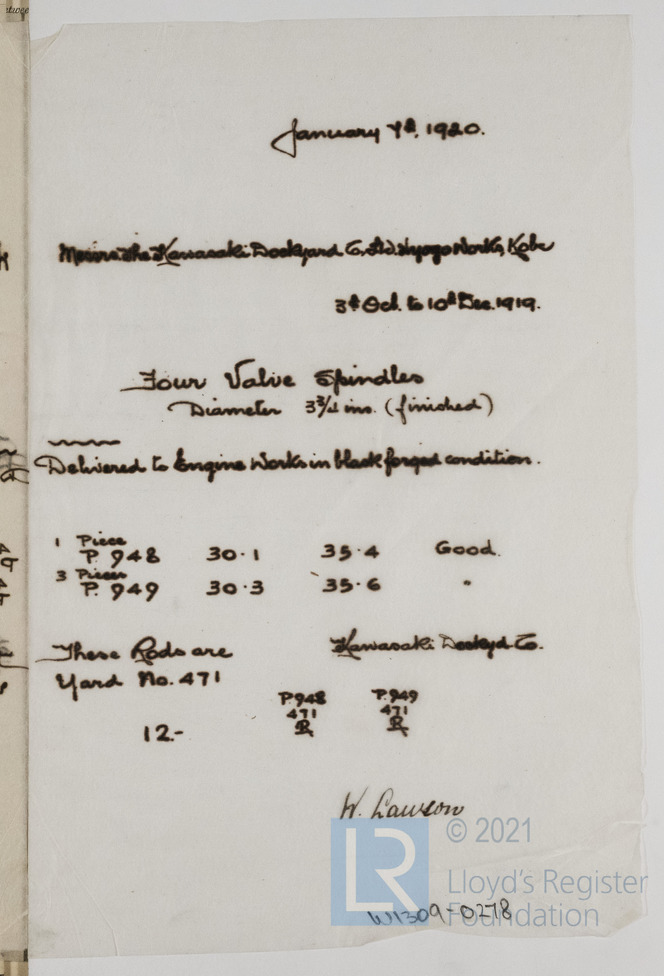 January 7th, 1920.
Messrs. The Kawasaki Dockyard Co. Ltd. Hyogo Works, Kobe
3rd Oct. to 10th Dec. 1919.
Four Valve Spindles
Diameter 3 3/4 ins. (finished)
Delivered to Engine Works in black forged condition.
1 Piece
P. 948 30.1 35.4 Good.
3 Pieces
P. 949 30.3 35.6 "
These Rods are Kawasaki Dockyd Co.
Yard No. 471
P.948 P.949
471 471
12.- R R
W. Lawson
LR
© 2021
Lloyd's Register
Foundation
W1309-0278